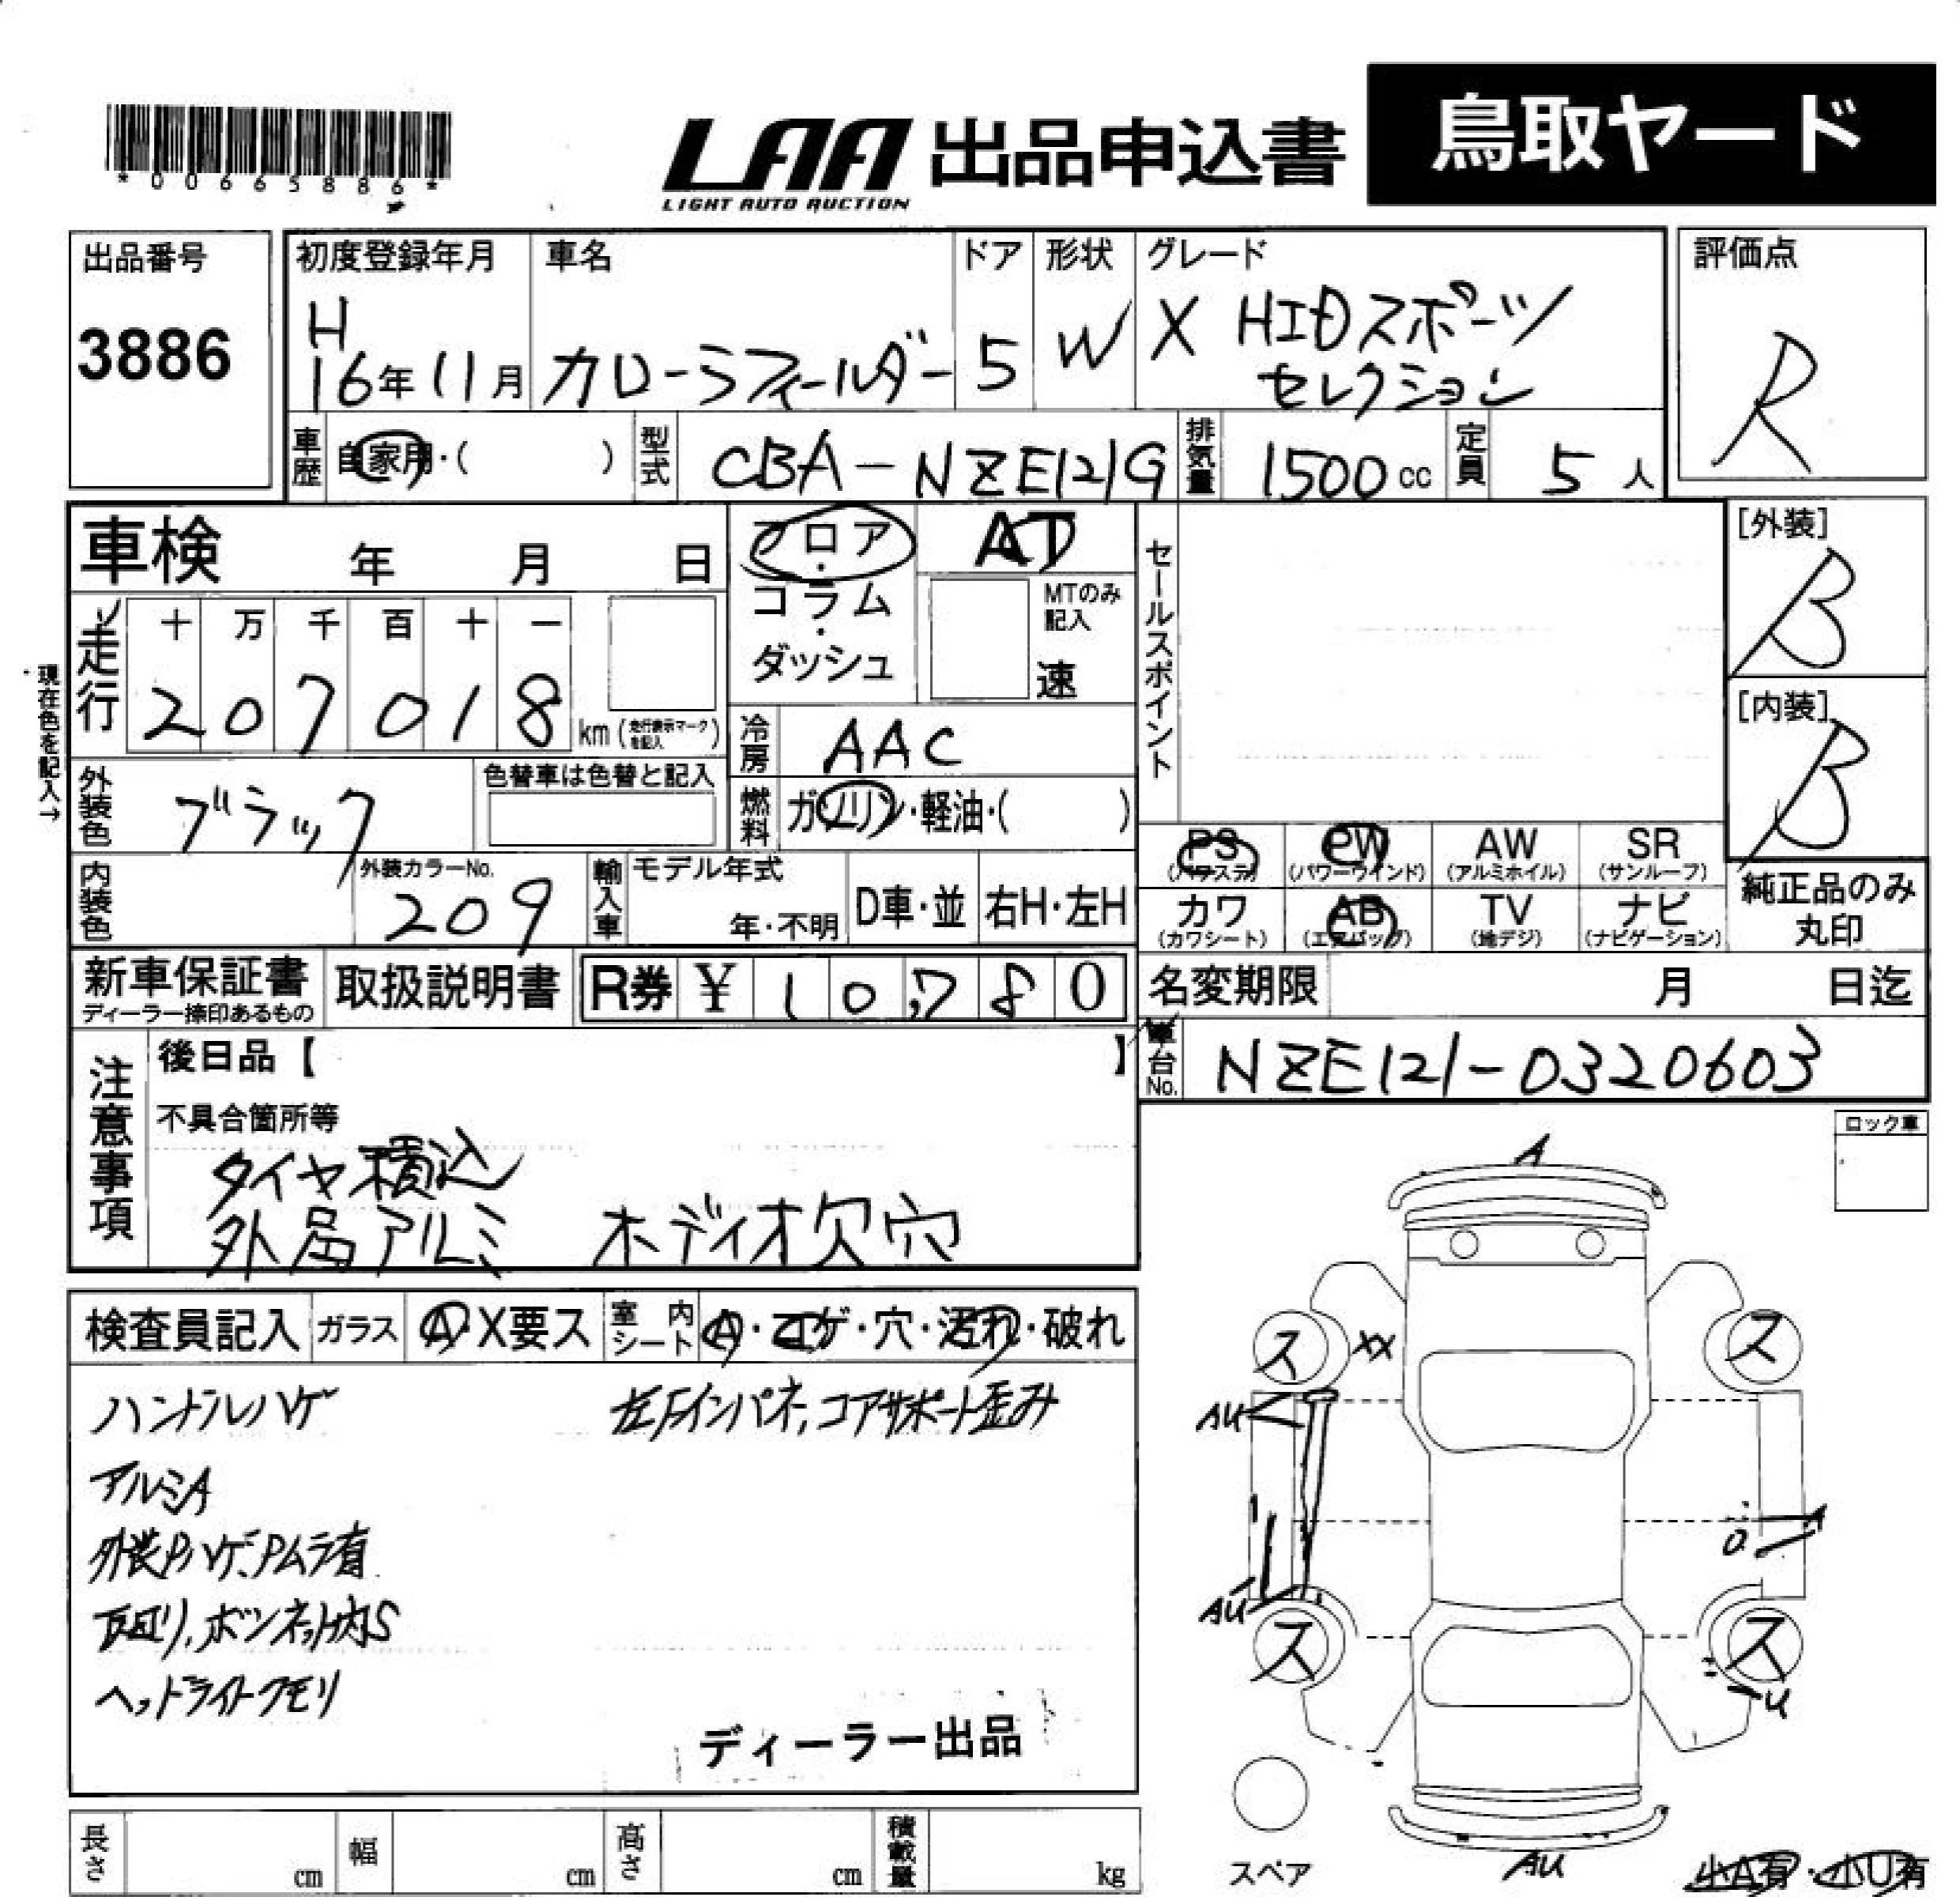 *00665886*
LAA 出品申込書 鳥取ヤード
LIGHT AUTO AUCTION
出品番号 3886
初度登録年月 H 16年 11月
車名 カローラフィールダー
ドア 5
形状 W
グレード X HIDスポーツ
セレクション
評価点 R
車歴 自家用・( )
型式 CBA-NZE121G
排気量 1500 cc
定員 5 人
車検 年 月 日
フロア・コラム・ダッシュ
AT
MTのみ記入
速
セールスポイント
[外装] B
[内装] B
走行 十 万 千 百 十 一
2 0 7 0 1 8 km (走行表示マークを記入)
現在色を記入→
冷房 AAC
燃料 ガソリン・軽油・( )
外装色 ブラック
色替車は色替と記入
内装色
外装カラーNo. 209
輸入車
モデル年式 年・不明
D車・並
右H・左H
PS (パワステ)
PW (パワーウインド)
AW (アルミホイル)
SR (サンルーフ)
カワ (カワシート)
AB (エアバッグ)
TV (地デジ)
ナビ (ナビゲーション)
純正品のみ
丸印
新車保証書
ディーラー捺印あるもの
取扱説明書
R券 ¥ 1 0, 7 8 0
名変期限 月 日迄
車台No. NZE121-0320603
注意事項
後日品【 】
不具合箇所等
タイヤ積込
外局アルミ オディオ欠穴
ロック車
検査員記入
ガラス A・X要ス
室内シート A・コゲ・穴・汚れ・破れ
ハンドルハゲ 左Fインパネ,コアサポート歪み
アルミA
外装Pハゲ、Pムラ有
下回り,ボンネット内S
ヘッドライトクモリ
ディーラー出品
A
ス
XX
ス
AU
AU
ス
ス
U
スペア
AU
小A有・小U有
長さ cm
幅 cm
高さ cm
積載量 kg